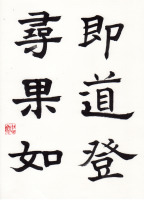 即道登
尋果如